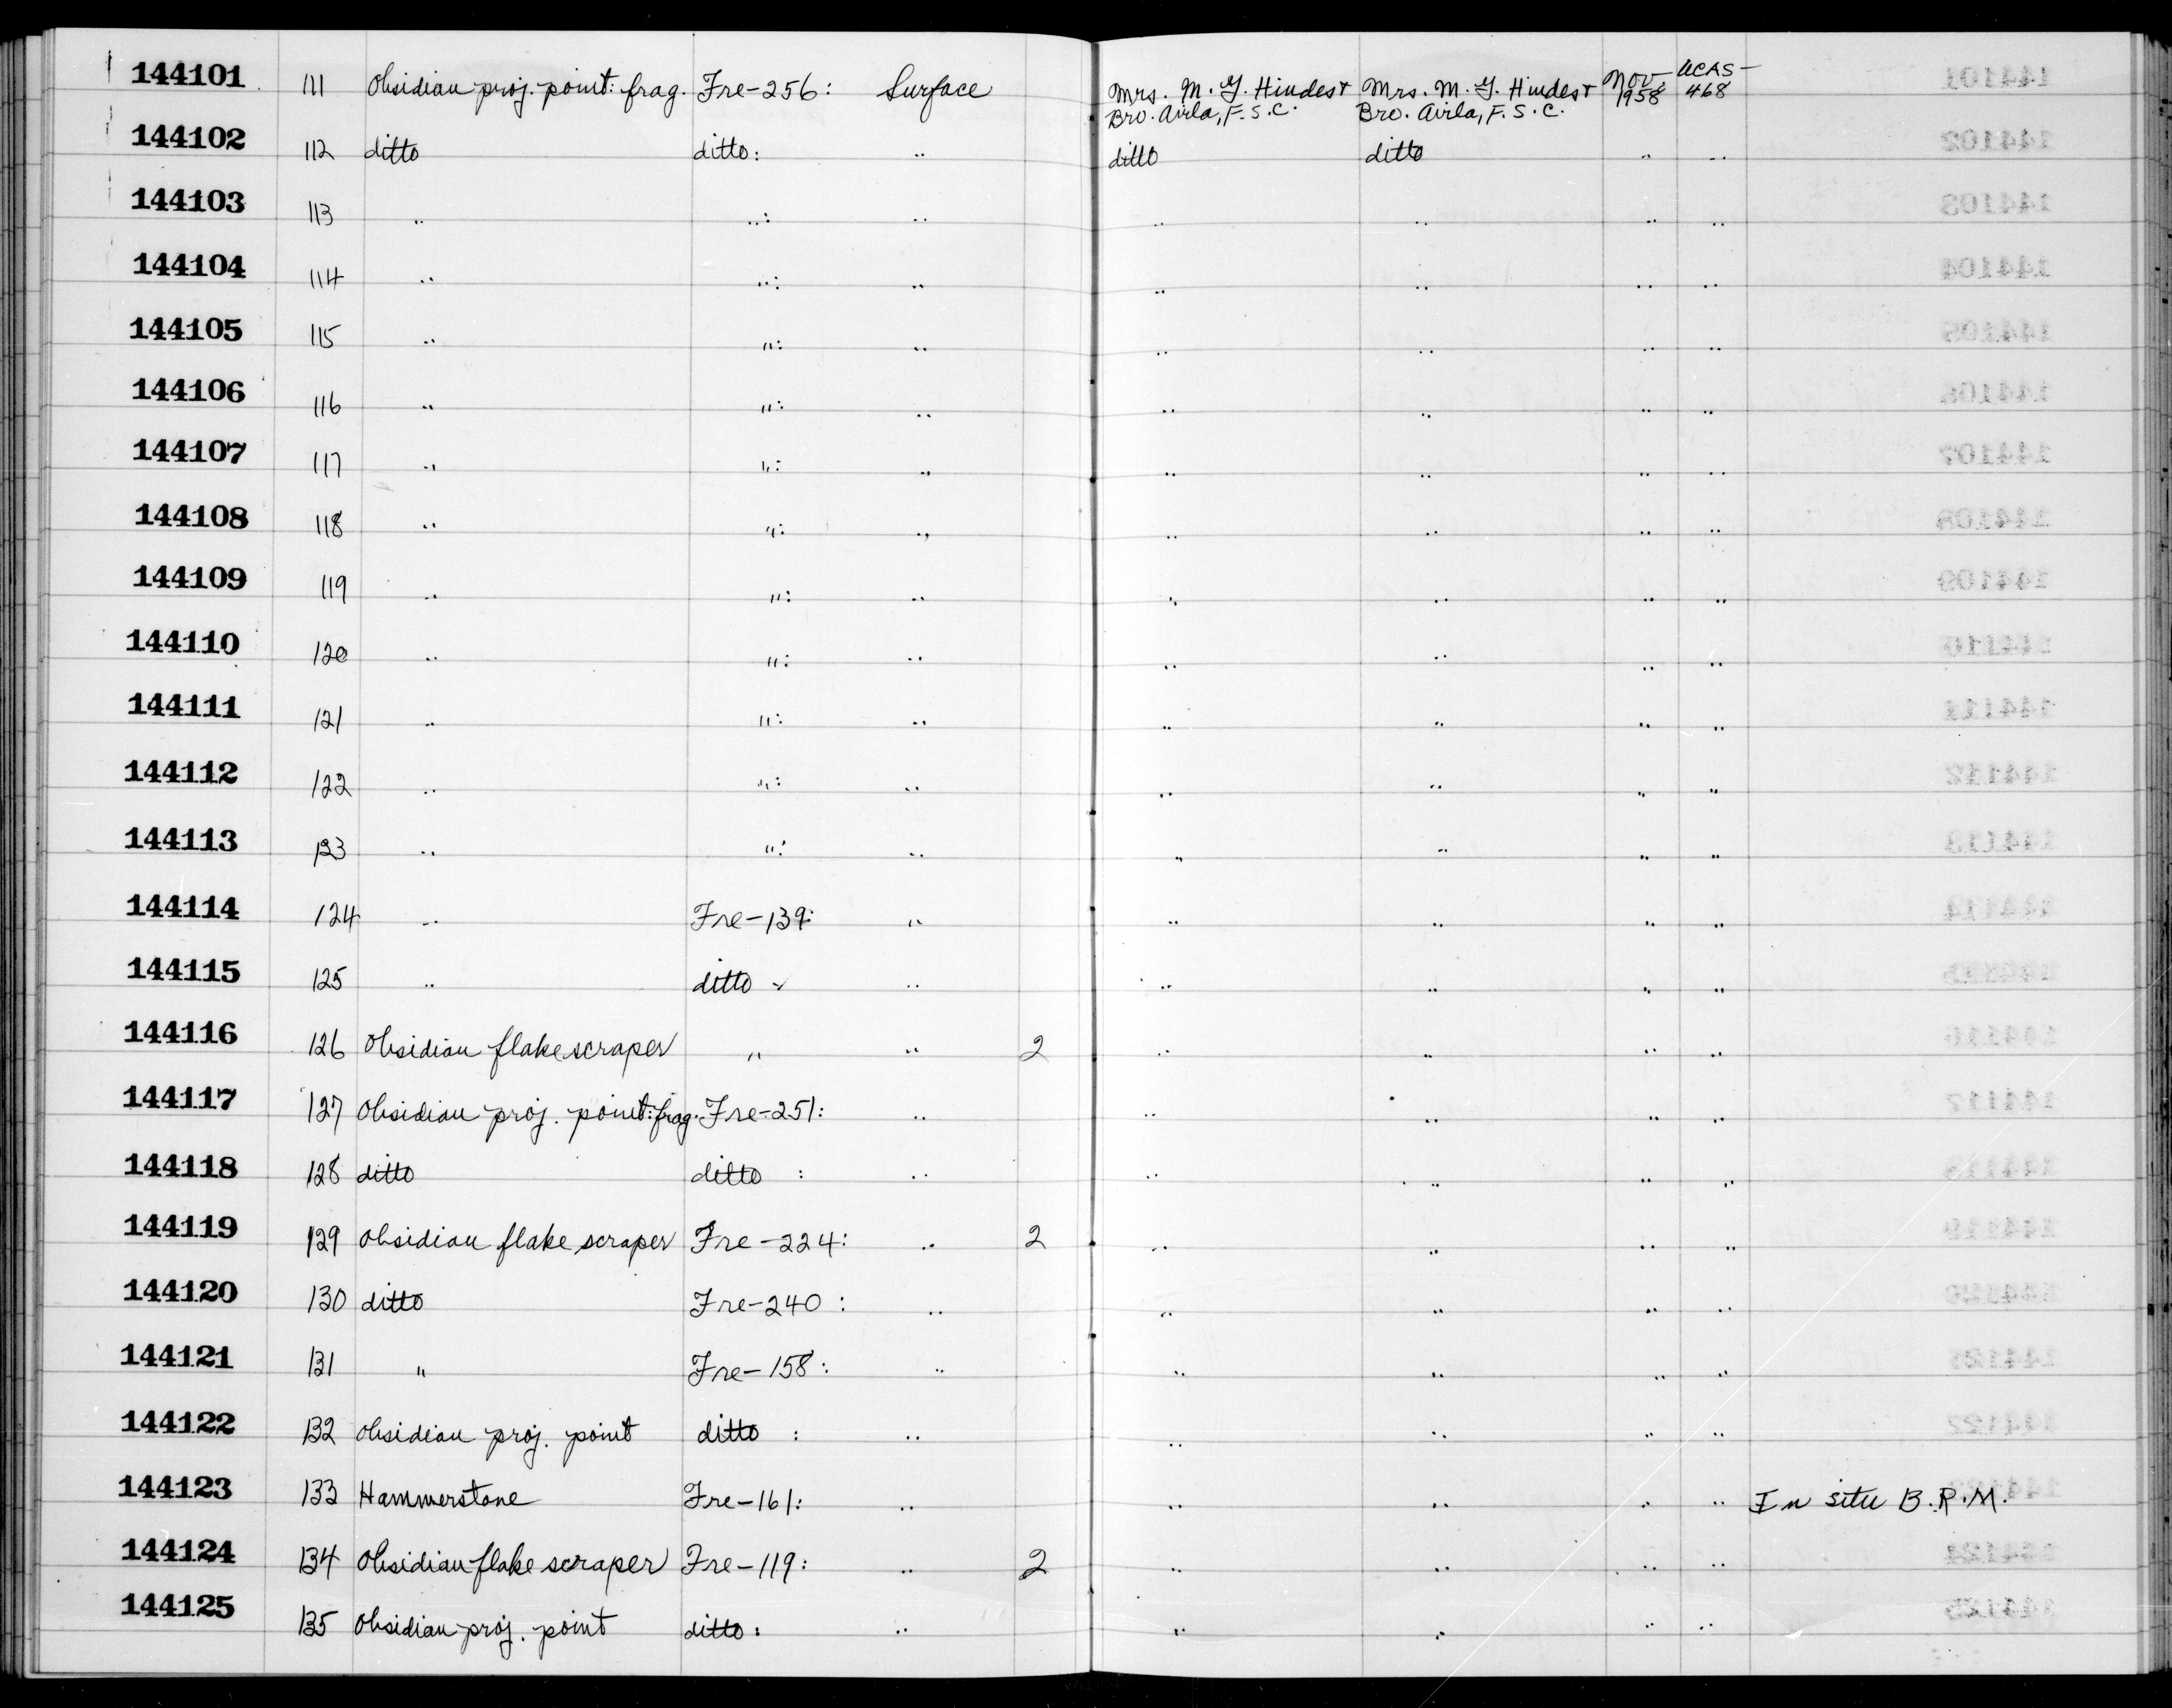 144101 111 Obsidian proj. point: frag. Fre-256: Surface Mrs. M. G. Hindes + Bro. Airla, F.S.C. Mrs. M. G. Hindes + Bro. Airla, F.S.C. Nov. 1958 UCAS-468
144102 112 ditto ditto: " ditto ditto " "
144103 113 " ": " " " " "
144104 114 " ": " " " " "
144105 115 " ": " " " " "
144106 116 " ": " " " " "
144107 117 " ": " " " " "
144108 118 " ": " " " " "
144109 119 " ": " " " " "
144110 120 " ": " " " " "
144111 121 " ": " " " " "
144112 122 " ": " " " " "
144113 123 " ": " " " " "
144114 124 " Fre-139: " " " " "
144115 125 " ditto " " " " "
144116 126 Obsidian flake scraper " " 2 " " " "
144117 127 Obsidian proj. point: frag. Fre-251: " " " " "
144118 128 ditto ditto : " " " " "
144119 129 Obsidian flake scraper Fre-224: " 2 " " " "
144120 130 ditto Fre-240 : " " " " "
144121 131 " Fre-158: " " " " "
144122 132 Obsidian proj. point ditto : " " " " "
144123 133 Hammerstone Fre-161: " " " " " In situ B.R.M.
144124 134 Obsidian flake scraper Fre-119: " 2 " " " "
144125 135 Obsidian proj. point ditto: " " " " "